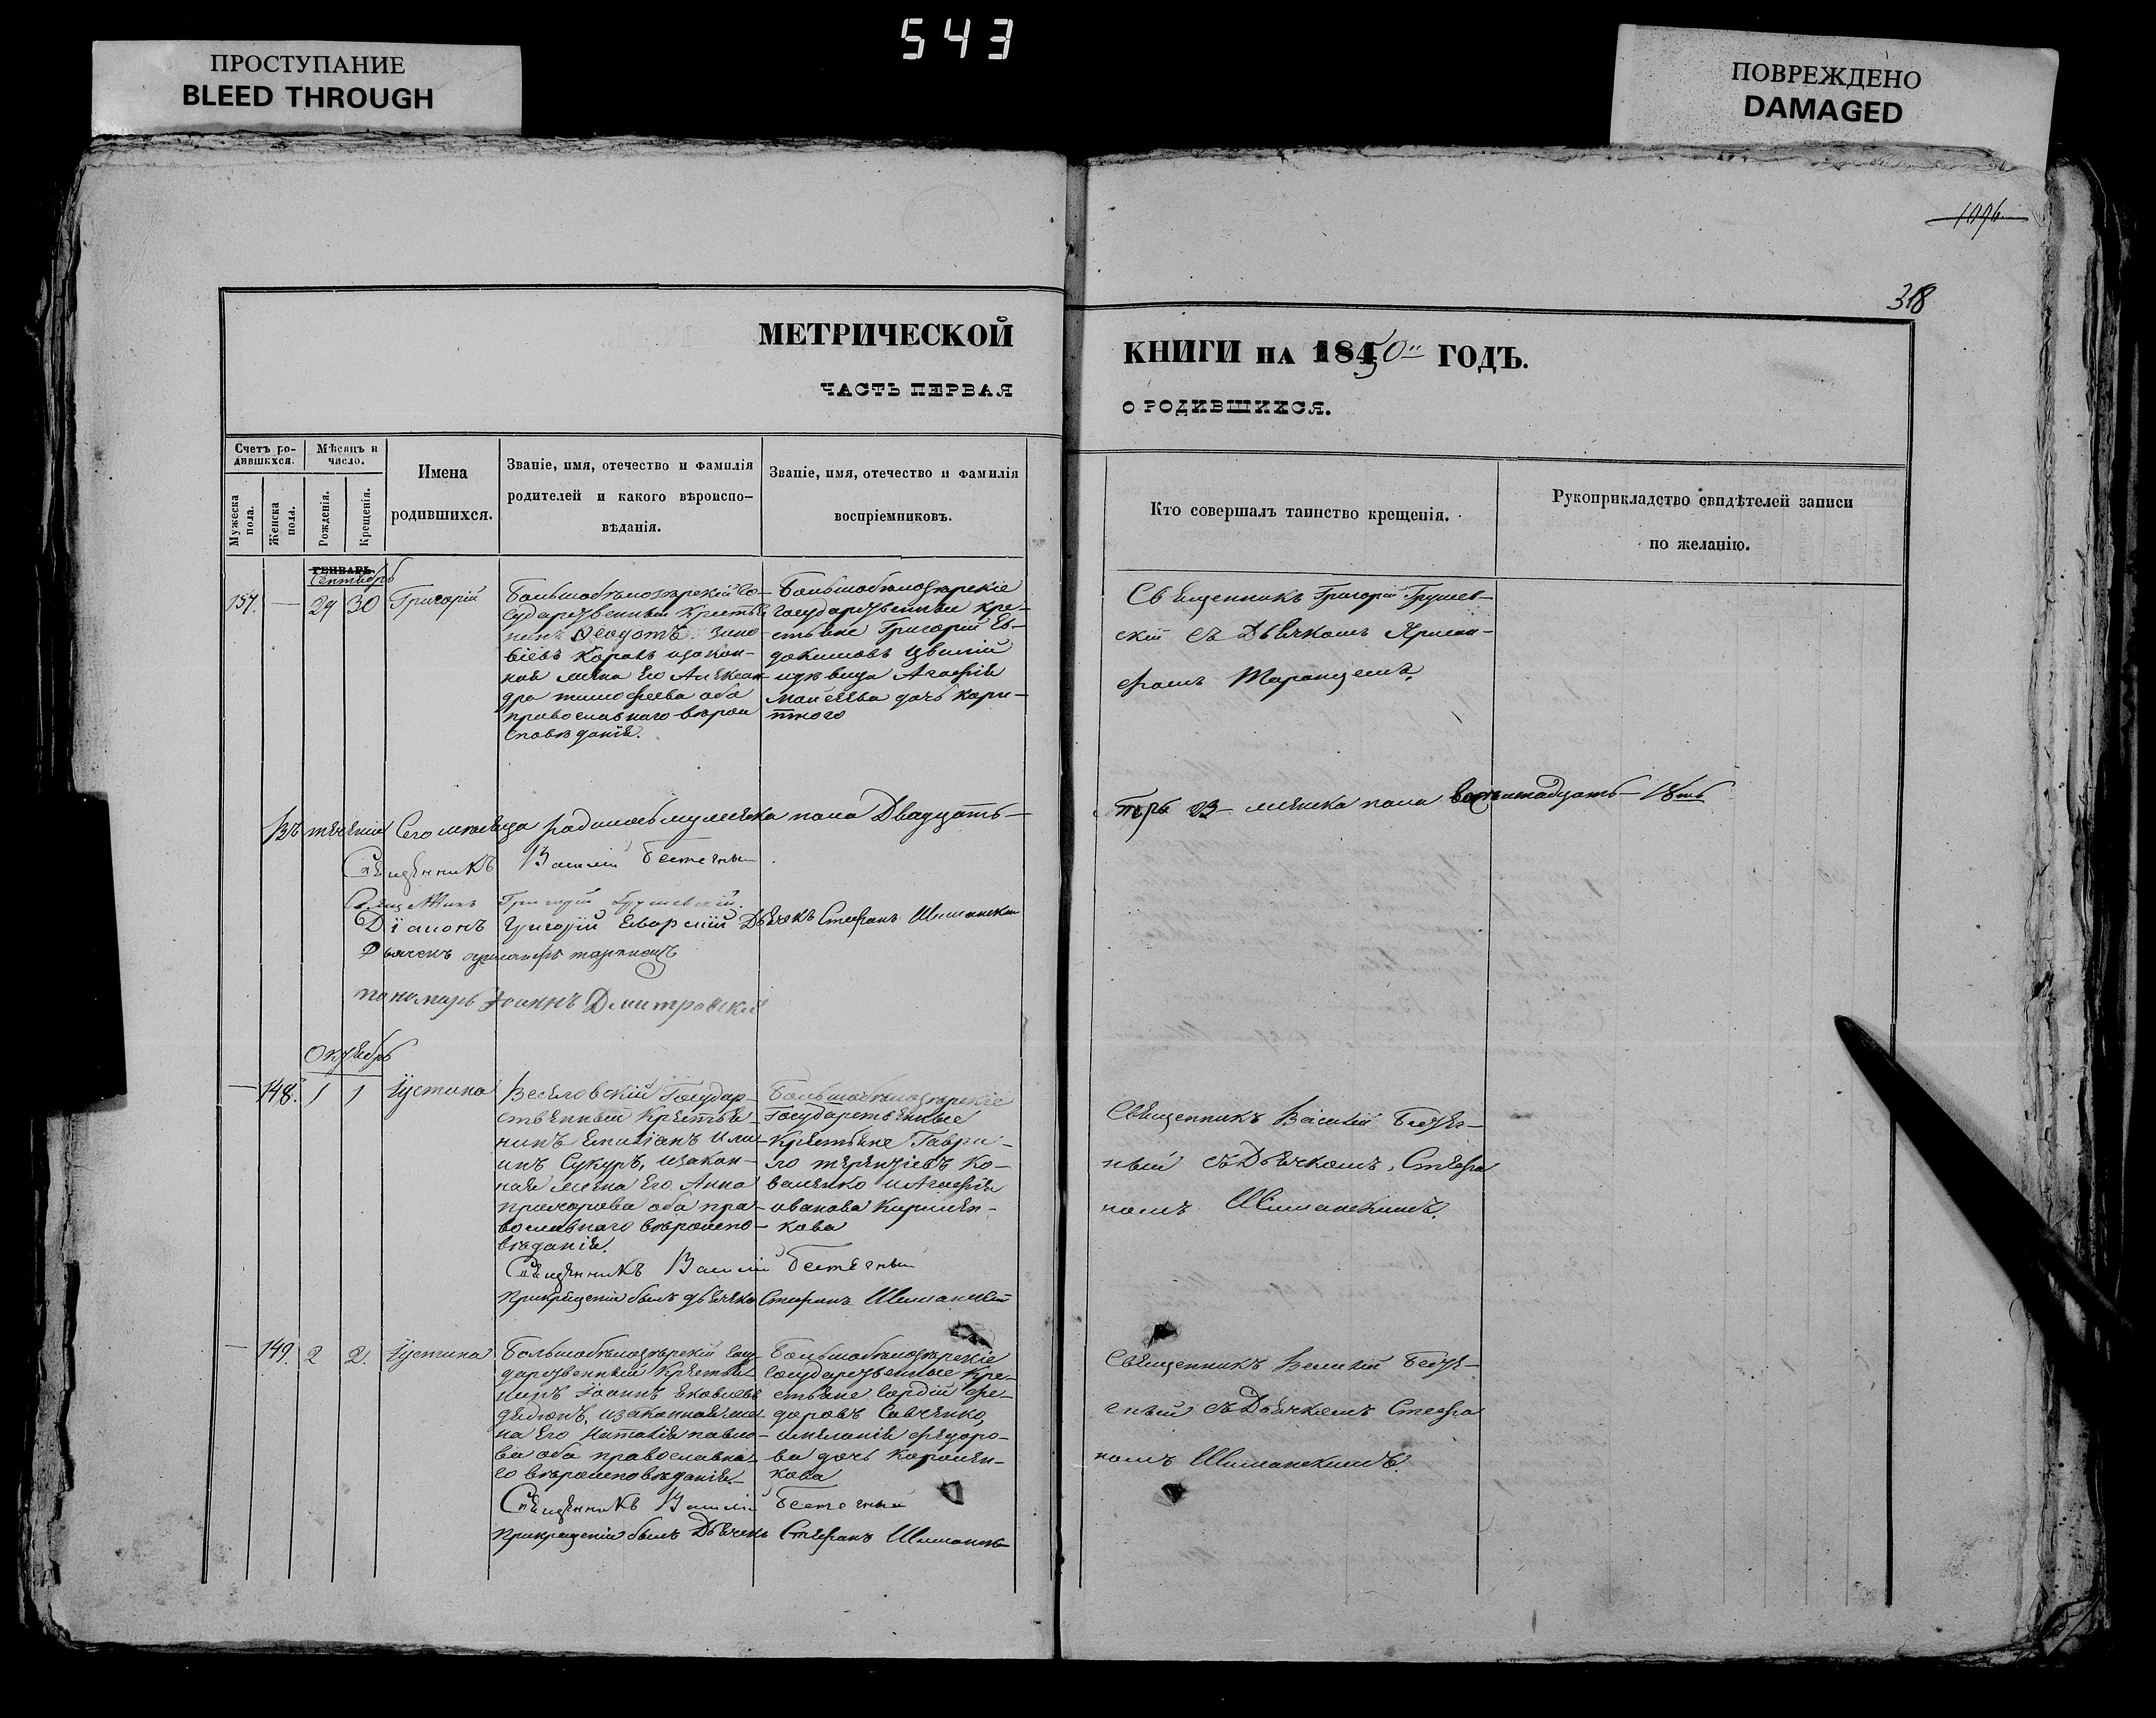 543
ПРОСТУПАНИЕ
BLEED THROUGH
ПОВРЕЖДЕНО
DAMAGED
1096
318
МЕТРИЧЕСКОЙ
ЧАСТЬ ПЕРВАЯ
КНИГИ НА 1850 ГОДЪ.
О РОДИВШИХСЯ.
Счетъ родившихся.
Мужеска пола.
Женска пола.
Мѣсяцъ и число.
Рожденія.
Крещенія.
Имена
родившихся.
Званіе, имя, отечество и фамилія
родителей и какого вѣроиспо-
вѣданія.
Званіе, имя, отечество и фамилія
воспріемниковъ.
Кто совершалъ таинство крещенія.
Рукоприкладство свидѣтелей записи
по желанію.
ГЕНВАРЬ.
Сентябрь
157. — 29 30 Григорій
Большобѣлозѣрскій Го-
сударственный Крестья
нинъ Ѳеодотъ Зино
віевъ Коравъ изакон-
ная жена Его Алексан
дра тимофеева оба
православнаго вѣрои
сповѣданія.
Большобѣлозѣрскіе
государственные кре-
стьяне Григорій Ев-
докимовъ
Агафія
Моисеева дочь кори-
тного
Священникъ Григорій Грушев-
скій съ Дьячкомъ
Таранцемъ.
Въ теченіи Сего мѣсяца родилось мужеска пола Двадцать
три 23 женска пола восемнадцать 18ть
Священникъ Василій
Священникъ Григорій Грушевскій.
Діаконъ Григорій Дьячекъ Стефанъ Шиманскій
Дьячекъ таранецъ
пономарь Іоаннъ Дмитровскій
Октябрь
— 148. 1 1 Іустина
Веселовскій Государ-
ственный Крестья-
нинъ Емиліанъ Или-
инъ Сукуръ, изакон-
ная жена Его Анна
прохорова оба пра-
вославнаго вѣроиспо-
вѣданія.
Большобѣлозѣрскіе
Государственные
Крестьяне Гаври-
ло терентіевъ Ко-
валенко иАгафія
иванова Кирилен-
кова
Священникъ Василій
съ Дьячкомъ Стефа
номъ Шиманскимъ.
Священникъ Василій
Прикрещеніи былъ дьячекъ Стефанъ Шиманскій
— 149. 2 2. Іустина
Большобѣлозѣрскій Госу-
дарственный Крестья
нинъ Іоаннъ Яковлевъ
изаконная же-
на Его Наталія павло-
ва оба православна
го вѣроисповѣданія.
Большобѣлозѣрскіе
Государственные Кре-
стьяне Гордій Фе-
доровъ Савченко,
имеланія федоро-
ва дочь Коромен-
кова
Священникъ Василій
съ Дьячкомъ Стефа
номъ Шиманскимъ.
Священникъ Василій
Прикрещеніи былъ Дьячекъ Стефанъ Шиманскій